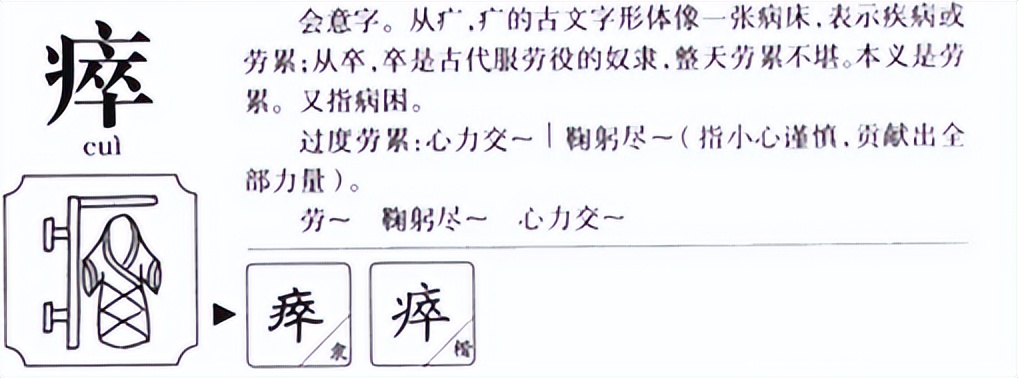 瘁
cuì
会意字。从疒,疒的古文字形体像一张病床,表示疾病或
劳累;从卒,卒是古代服劳役的奴隶,整天劳累不堪。本义是劳
累。又指病困。
过度劳累:心力交~｜鞠躬尽~(指小心谨慎,贡献出全
部力量)。
劳~ 鞠躬尽~ 心力交~
瘁 隶
瘁 楷